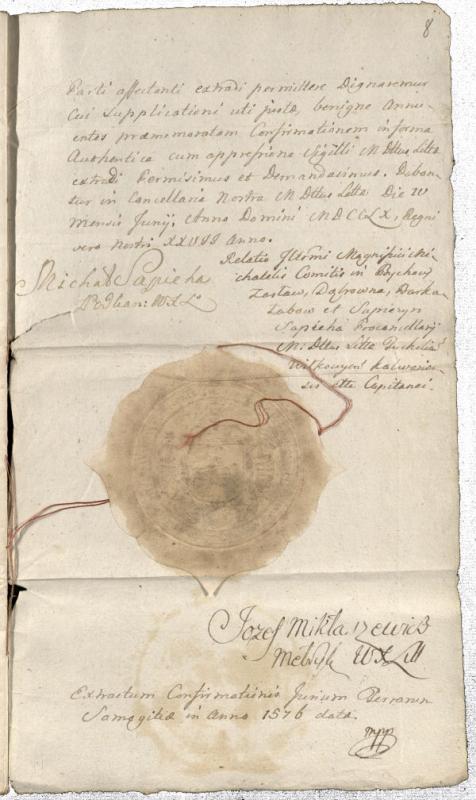 8
Parti affectanti extradi permittere Dignaremur
Cui Supplicationi uti justæ, benigne Annu-
entes præmemoratam Confirmationem in forma
Authentica cum appressione Sigilli M Dttus Littæ
extradi Permisimus et Demandavimus. Daban-
tur in Cancellaria Nostra M Dttus Littæ Die IV
Mensis Junij. Anno Domini MDCCLX, Regni
vero Nostri XXVII Anno.
Relatio Illrmi Magnifici Mi-
chaelis Comitis in Bychow
Zasław, Dąbrowna, Dorka
Labow et Sapieżyn
Sapieha Procancellarij
M. Dttus Littæ
Capitanei.
Michał Sapieha
Jozef Mikłaszewicz
Metryk WXLitt
Extractum Confirmationis Jurium Terrarum
Samogitiæ in Anno 1576 datæ.
mpp